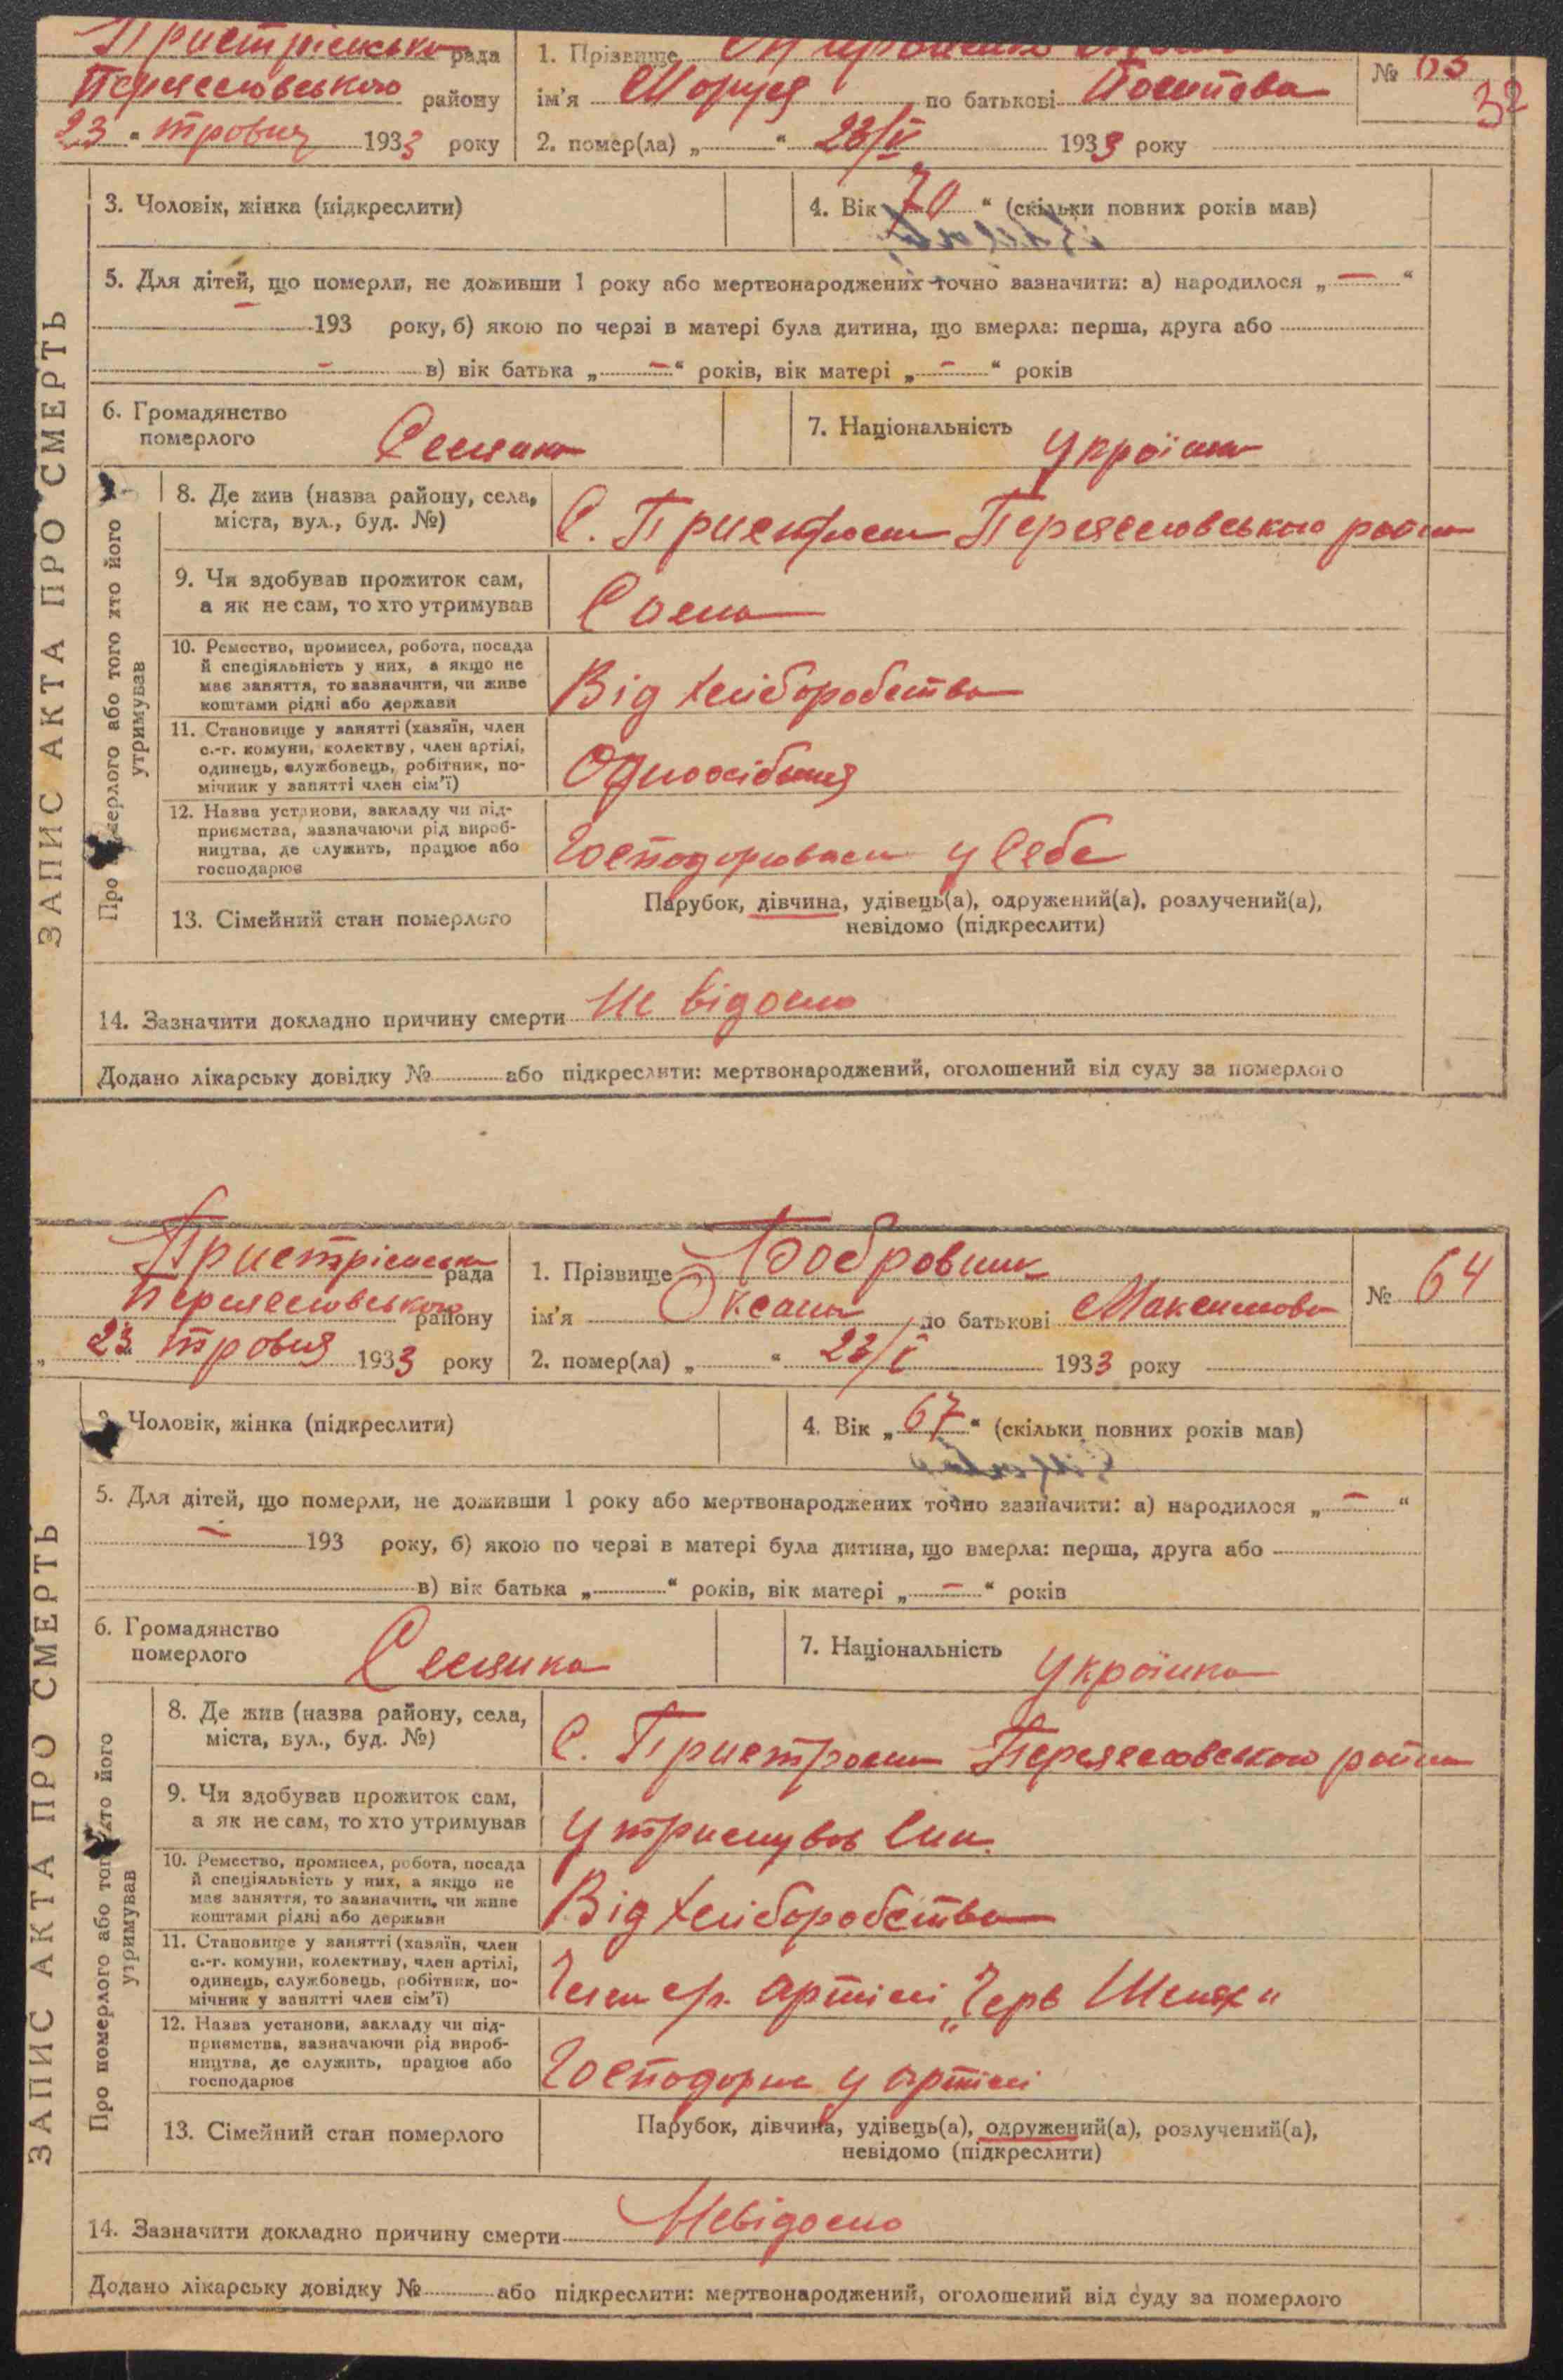 Пристрімська рада
Переяславського району
23 " травня 1933 року
1. Прізвище
ім'я Маруся по батькові Йосипова
2. помер(ла) „ " 23/V 1933 року
№ 63
32
ЗАПИС АКТА ПРО СМЕРТЬ
3. Чоловік, жінка (підкреслити)
4. Вік 70 " (скільки повних років мав)
5. Для дітей, що померли, не доживши 1 року або мертвонароджених точно зазначити: а) народилося „ — "
— 193 року, б) якою по черзі в матері була дитина, що вмерла: перша, друга або
— в) вік батька „ — " років, вік матері „ — " років
6. Громадянство
померлого Селянка
7. Національність Українка
Про померлого або того хто його
утримував
8. Де жив (назва району, села,
міста, вул., буд. №)
С. Пристроми Переяславського району
9. Чи здобував прожиток сам,
а як не сам, то хто утримував
Сама
10. Ремество, промисел, робота, посада
й спеціяльність у них, а якщо не
має заняття, то зазначити, чи живе
коштами рідні або держави
Від хліборобства
11. Становище у занятті (хазяїн, член
с.-г. комуни, колектву, член артілі,
одинець, службовець, робітник, по-
мічник у занятті член сім'ї)
Одноосібниця
12. Назва установи, закладу чи під-
приємства, зазначаючи рід вироб-
ництва, де служить, працює або
господарює
Господарювала у себе
13. Сімейний стан померлого
Парубок, дівчина, удівець(а), одружений(а), розлучений(а),
невідомо (підкреслити)
14. Зазначити докладно причину смерти Не відомо
Додано лікарську довідку № або підкреслити: мертвонароджений, оголошений від суду за померлого
Пристрімська рада
Переяславського району
„ 23 травня 1933 року
1. Прізвище Бобровник
ім'я Оксана по батькові Максимова
2. помер(ла) „ " 23/V 1933 року
№ 64
ЗАПИС АКТА ПРО СМЕРТЬ
3. Чоловік, жінка (підкреслити)
4. Вік „ 67 " (скільки повних років мав)
5. Для дітей, що померли, не доживши 1 року або мертвонароджених точно зазначити: а) народилося „ — "
— 193 року, б) якою по черзі в матері була дитина, що вмерла: перша, друга або
в) вік батька „ " років, вік матері „ — " років
6. Громадянство
померлого Селянка
7. Національність Українка
Про померлого або того хто його
утримував
8. Де жив (назва району, села,
міста, вул., буд. №)
С. Пристроми Переяславського району
9. Чи здобував прожиток сам,
а як не сам, то хто утримував
Утримував син.
10. Ремество, промисел, робота, посада
й спеціяльність у них, а якщо не
має заняття, то зазначити, чи живе
коштами рідні або держави
Від хліборобства
11. Становище у занятті (хазяїн, член
с.-г. комуни, колективу, член артілі,
одинець, службовець, робітник, по-
мічник у занятті член сім'ї)
Член с/г. артілі „Черв Шлях"
12. Назва установи, закладу чи під-
приємства, зазначаючи рід вироб-
ництва, де служить, працює або
господарює
Господарює у артілі
13. Сімейний стан померлого
Парубок, дівчина, удівець(а), одружений(а), розлучений(а),
невідомо (підкреслити)
14. Зазначити докладно причину смерти Невідомо
Додано лікарську довідку № або підкреслити: мертвонароджений, оголошений від суду за померлого